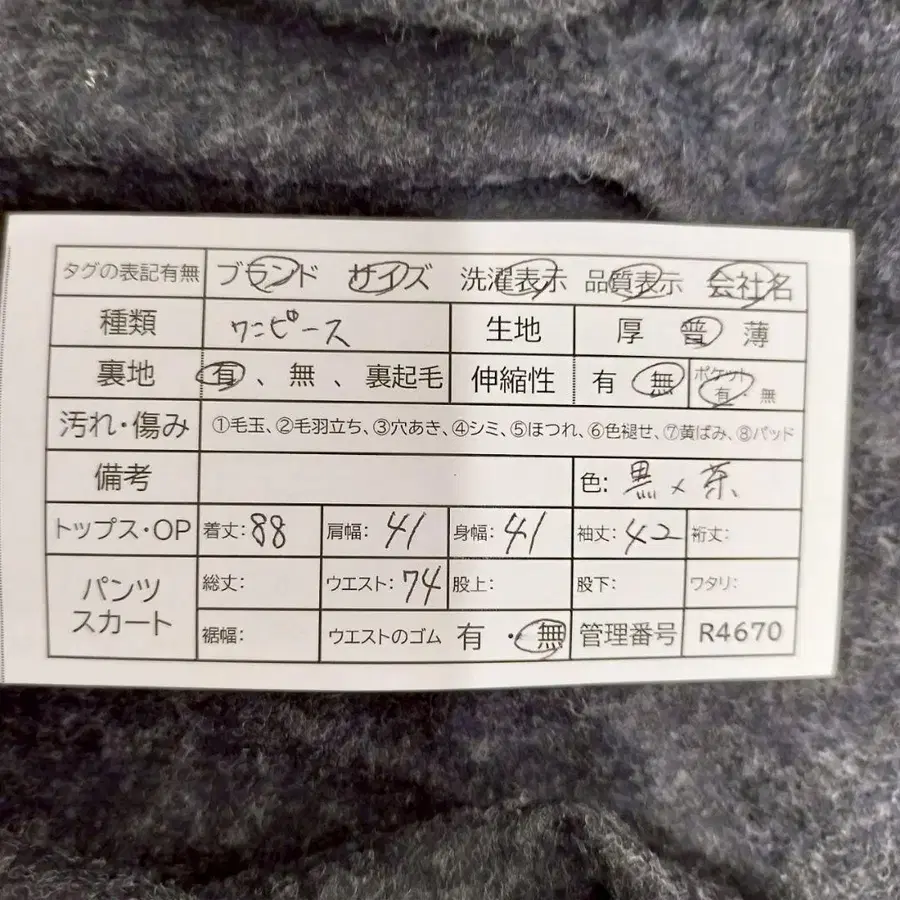 タグの表記有無 ブランド サイズ 洗濯表示 品質表示 会社名
種類 ワンピース 生地 厚 普 薄
裏地 有、無、裏起毛 伸縮性 有 無 ポケット 有・無
汚れ・傷み ①毛玉、②毛羽立ち、③穴あき、④シミ、⑤ほつれ、⑥色褪せ、⑦黄ばみ、⑧パッド
備考 色: 黒×茶
トップス・OP 着丈: 88 肩幅: 41 身幅: 41 袖丈: 42 裄丈:
パンツ スカート 総丈: ウエスト: 74 股上: 股下: ワタリ:
裾幅: ウエストのゴム 有・無 管理番号 R4670